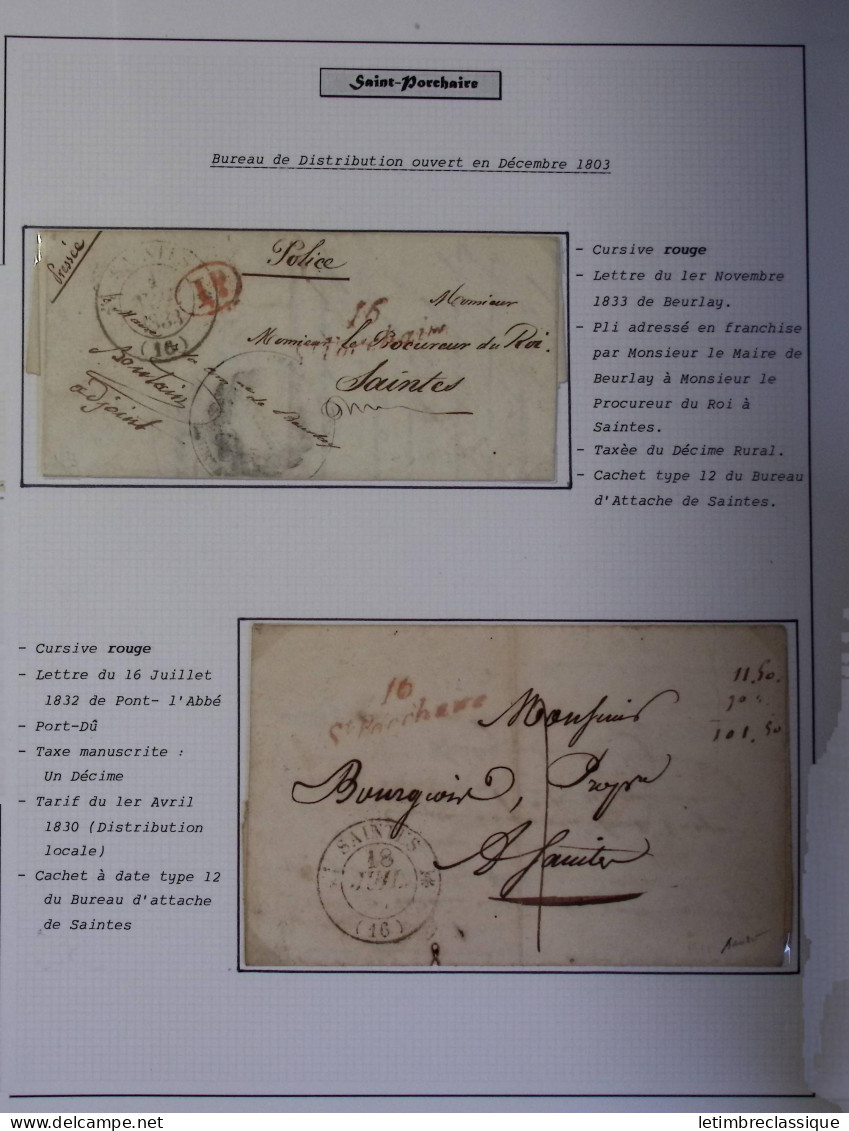 Saint-Porchaire
Bureau de Distribution ouvert en Décembre 1803
Pressée
Police
1D
16
Monsieur
Monsieur le Procureur du Roi.
Saintes
(16)
adjoint
- Cursive rouge
- Lettre du 1er Novembre
1833 de Beurlay.
- Pli adressé en franchise
par Monsieur le Maire de
Beurlay à Monsieur le
Procureur du Roi à
Saintes.
- Taxèe du Décime Rural.
- Cachet type 12 du Bureau
d'Attache de Saintes.
- Cursive rouge
- Lettre du 16 Juillet
1832 de Pont- l'Abbé
- Port-Dû
- Taxe manuscrite :
Un Décime
- Tarif du 1er Avril
1830 (Distribution
locale)
- Cachet à date type 12
du Bureau d'attache
de Saintes
16
St Porchaire
11.50.
90
101.50
Monsieur
Bourgeois, Propre
A Saintes
SAINTES
18
JUIL
(16)
letimbreclassique